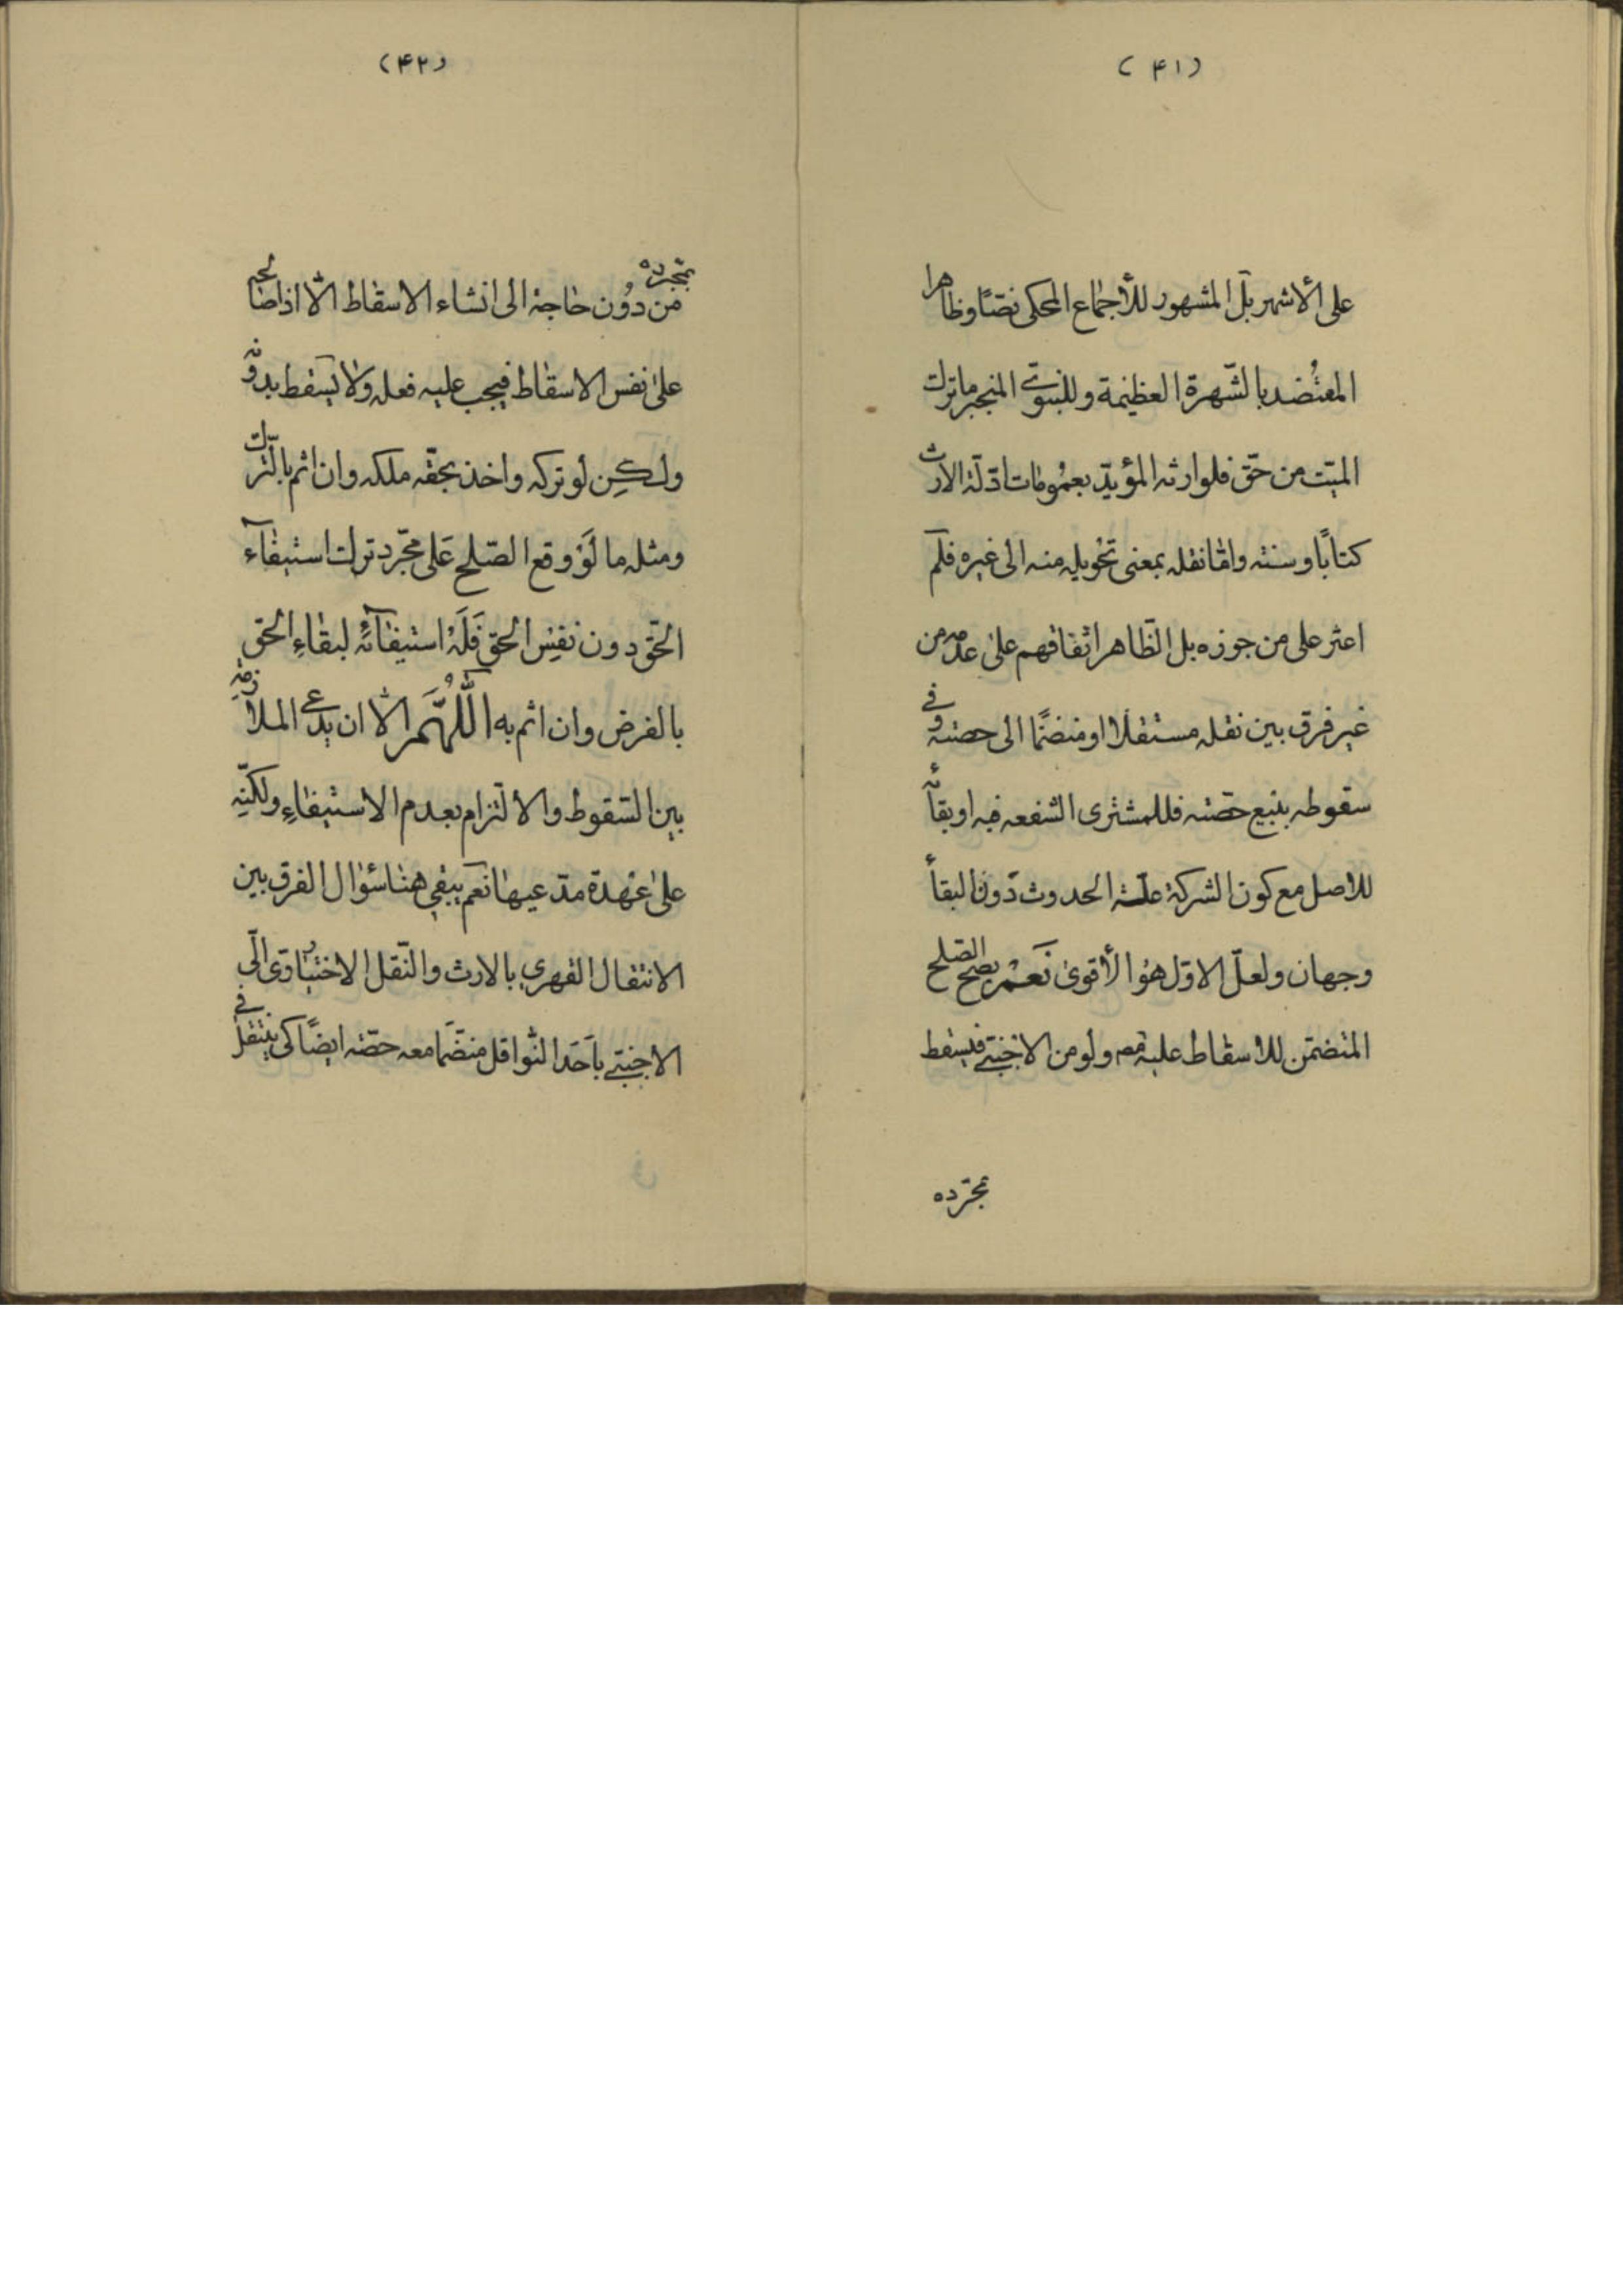 (۴۱)
على الأشهر بل المشهور للأجماع المحكى نصّاً وظاهرا
المعتضد بالشّهرة العظيمة وللنبوىّ المنجبر ما ترك
الميّت من حقّ فلوارثه المؤيّد بعمومات ادلّة الارث
كتاباً وسنته وامّا نقله بمعنى تحويله منه الى غيره فلم
اعثر على من جوزه بل الظّاهر اتفاقهم على عدمه من
غير فرق بين نقله مستقلّا او منضمّا الى حصته وفى
سقوطه ببيع حصّته فللمشترى الشفعه فيه او بقائه
للاصل مع كون الشركة علّة الحدوث دون البقأ
وجهان ولعلّ الاوّل هو الأقوى نعم يصح الصّلح
المتضمّن للاسقاط عليه ولو من الاجنبىّ فيسقط
بمجرّده
(۴۲)
بمجرده
من دون حاجة الى انشاء الاسقاط الّا اذا صالحه
على نفس الاسقاط فيجب عليه فعله ولا يسقط بدونه
ولكن لو تركه واخذ بحقّه ملكه وان اثم بالتّرك
ومثله ما لو وقع الصّلح على مجرّد ترك استيفآء
الحقّ دون نفس الحقّ فله استيفائه لبقاء الحق
بالفرض وان اثم به اللّهمّ الّا ان يدعى الملازمة
بين السّقوط والألتزام بعدم الاستيفاء ولكنّه
على عهدة مدّعيها نعم يبقى هنا سؤال الفرق بين
الانتقال القهرى بالارث والنّقل الاختيارى الى
الاجنبىّ باحد النّواقل منضّما معه حصّته ايضاً كى ينتقل
فى